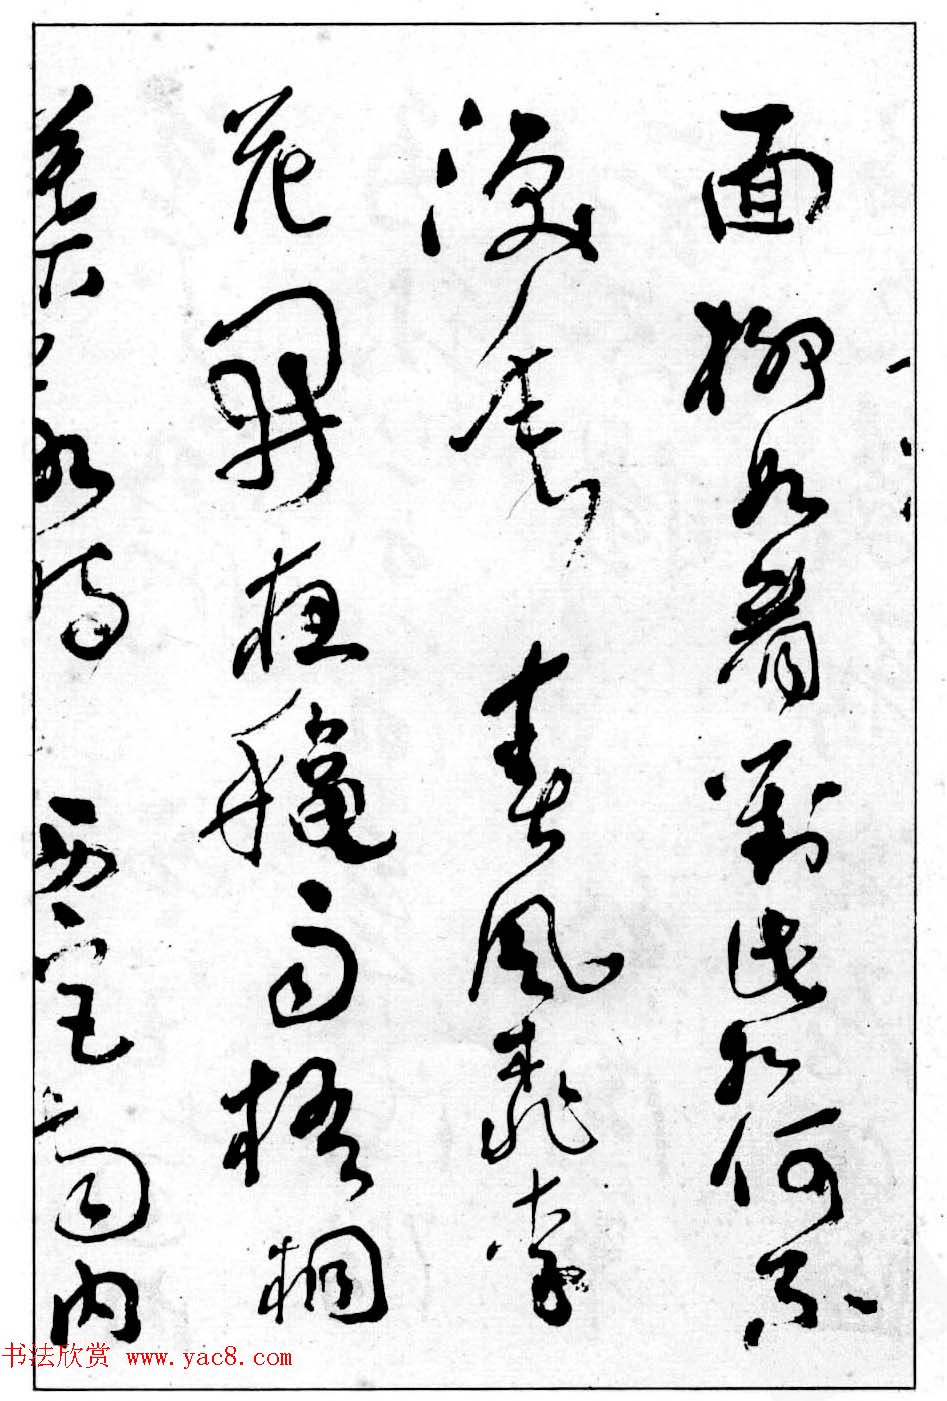 面柳如眉對此如何不
淚垂春風桃李
花開夜秋雨梧桐
葉落時西宮南内
书法欣赏 www.yac8.com